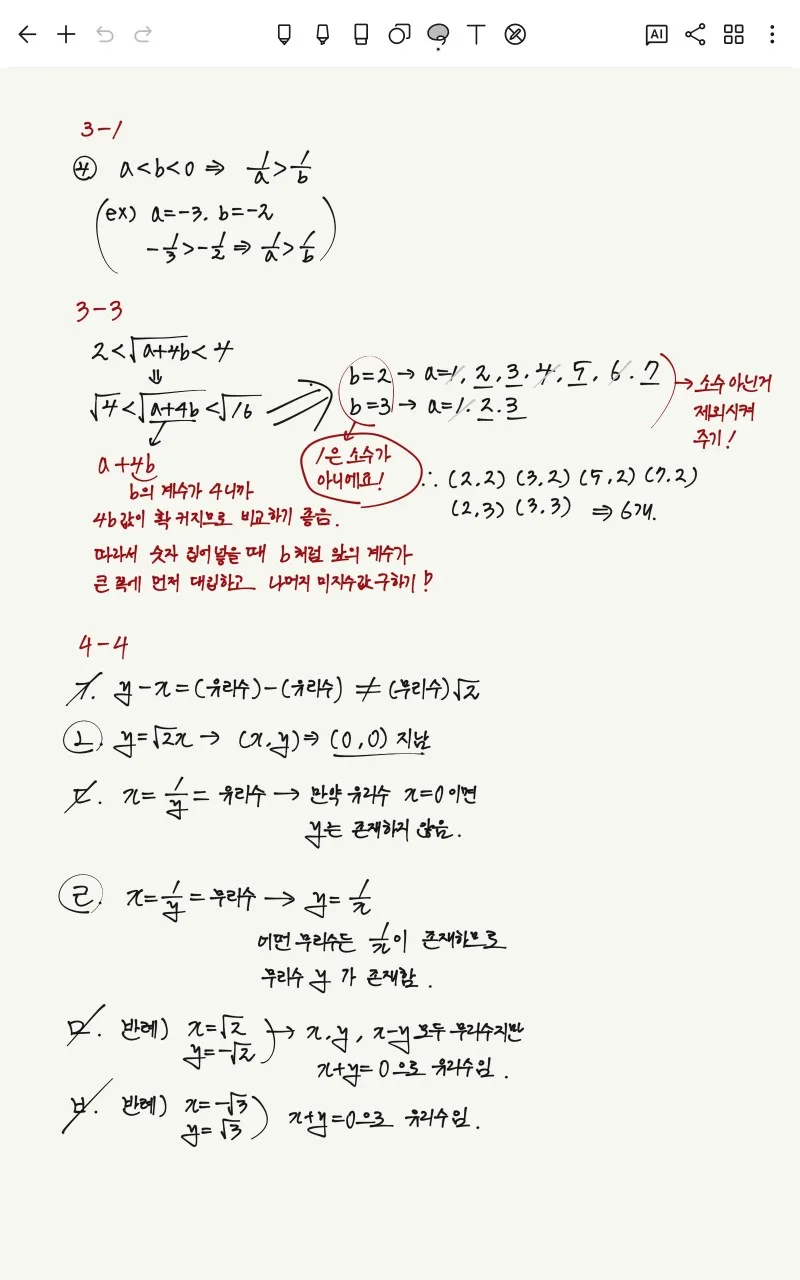 AI
3-1
④ a<b<0 ⇒ 1/a > 1/b
ex) a=-3. b=-2
-1/3 > -1/2 ⇒ 1/a > 1/b
3-3
2<√a+4b<4
⇓
√4<√a+4b<√16
b=2 → a=1, 2, 3, 4, 5, 6, 7
b=3 → a=1. 2. 3
→ 소수 아닌거
제외시켜
주기!
1은 소수가
아니에요!
∴ (2,2) (3,2) (5,2) (7,2)
(2,3) (3,3) ⇒ 6개.
a+4b
b의 계수가 4니까
4b값이 확 커지므로 비교하기 좋음.
따라서 숫자 집어넣을 때 b처럼 앞의 계수가
큰 쪽에 먼저 대입하고 나머지 미지수값 구하기!
4-4
ㄱ. y-x=(유리수)-(유리수) ≠ (무리수)√2
ㄴ. y=√2x → (x,y) ⇒ (0,0) 지남
ㄷ. x= 1/y = 유리수 → 만약 유리수 x=0이면
y는 존재하지 않음.
ㄹ. x= 1/y = 무리수 → y= 1/x
어떤 무리수든 1/x이 존재하므로
무리수 y 가 존재함.
ㅁ. 반례) x=√2
y=-√2
→ x,y, x-y 모두 무리수지만
x+y=0 으로 유리수임.
ㅂ. 반례) x=-√3
y=√3
x+y=0으로 유리수임.